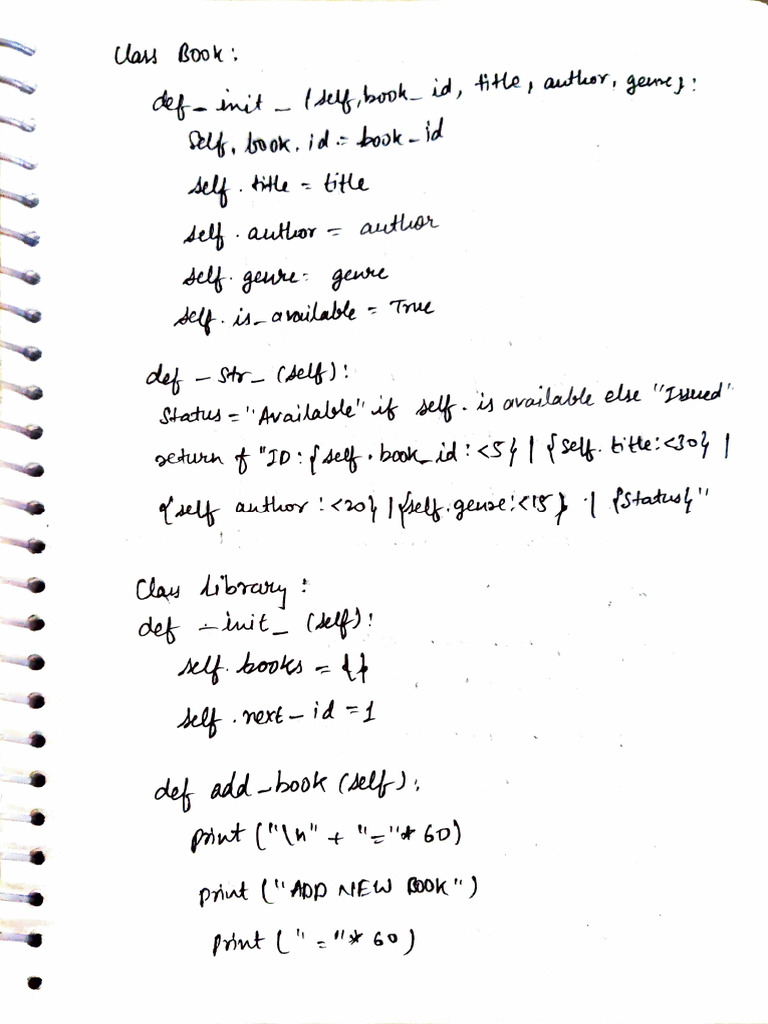 Class Book:
def _ init _ (self, book_id, title, author, genre):
Self. book. id = book_id
self. title = title
self. author = author
self. genre = genre
self. is_available = True
def _ Str_ (self):
Status = "Available" if self. is available else "Issued"
return f "ID: {self. book_id: <5} | {self. title: <30} |
{self author: <20} | {self. genre: <15} | {Status}"
Class Library:
def _ init _ (self):
self. books = {}
self. next_id = 1
def add_book (self):
print ("\n" + "="* 60)
print ("ADD NEW BOOK")
print ("="* 60)